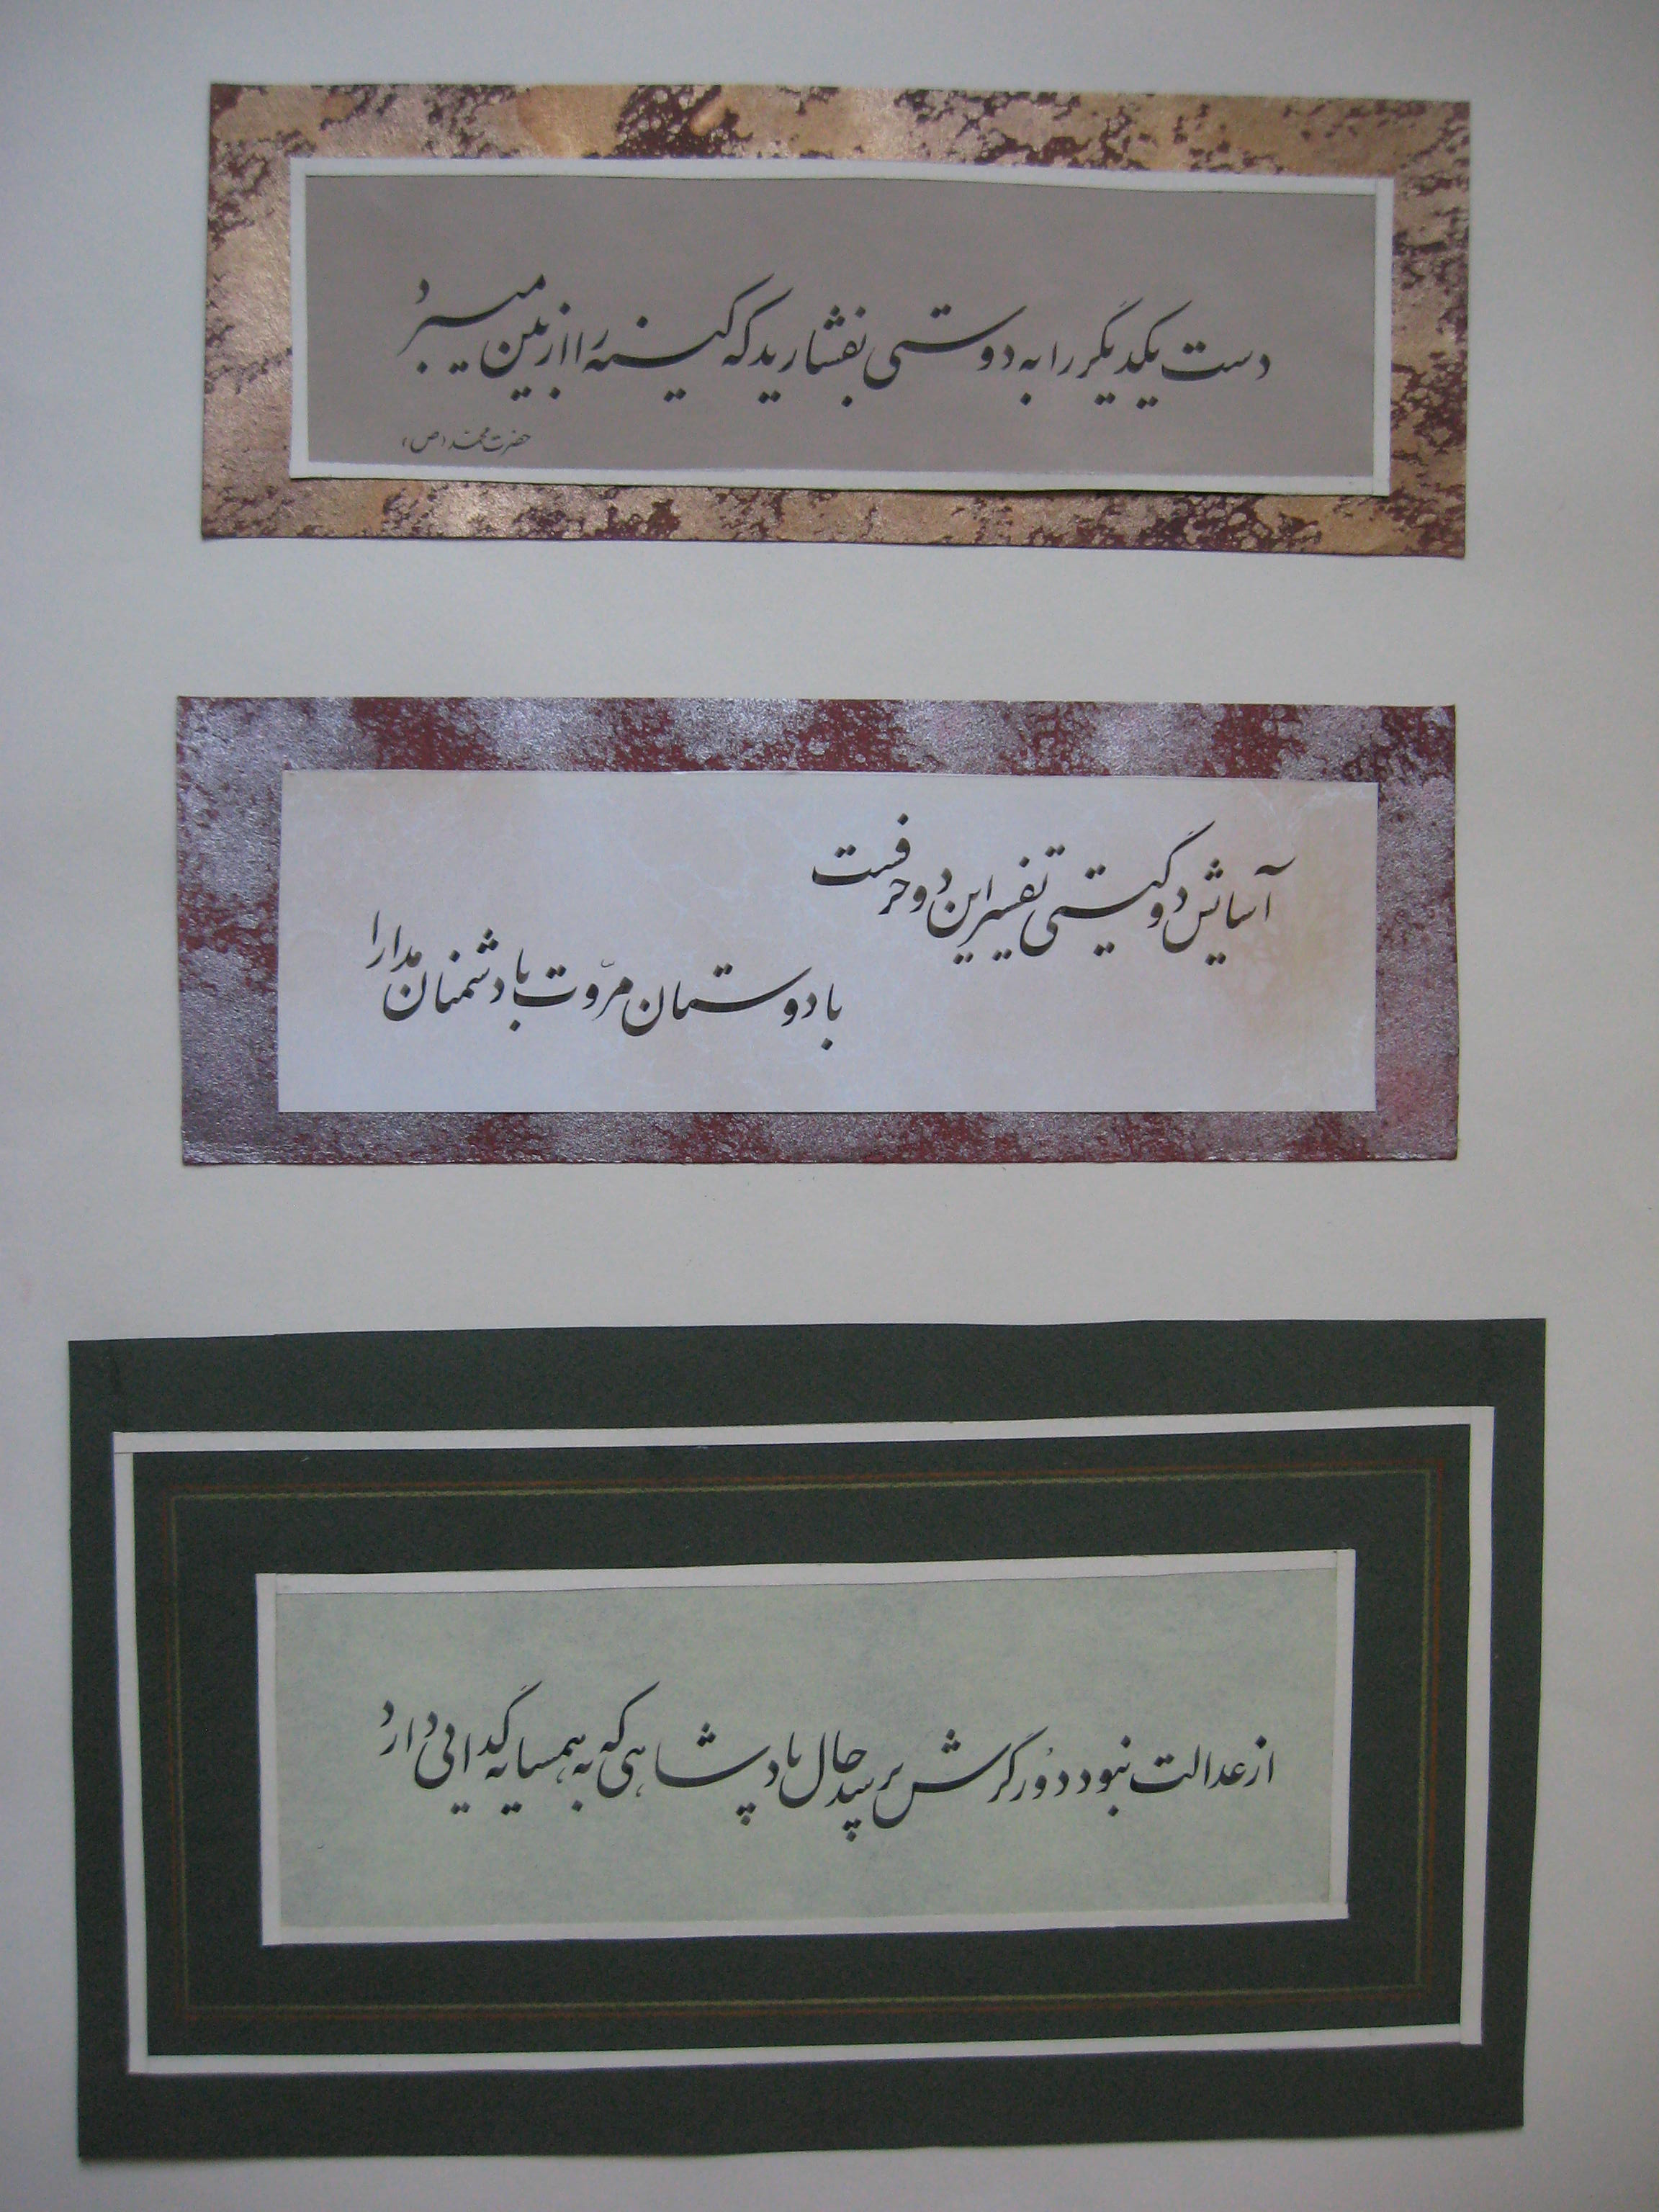 دست یکدیگر را به دوستی بفشارید که کینه را از بین میبرد
حضرت محمّد (ص)
آسایش دو گیتی تفسیر این دو حرفست
با دوستان مروّت با دشمنان مدارا
از عدالت نبود دور گرش پرسد حال
پادشاهی که به همسایه گدایی دارد